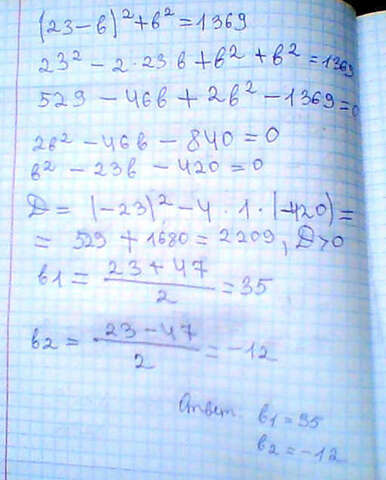 (23-в)²+в²=1369
23²-2·23в+в²+в²=1369
529-46в+2в²-1369=0
2в²-46в-840=0
в²-23в-420=0
D=(-23)²-4·1·(-420)=
=529+1680=2209, D>0
в1=(23+47)/2=35
в2=(23-47)/2=-12
Ответ в1=35
в2=-12